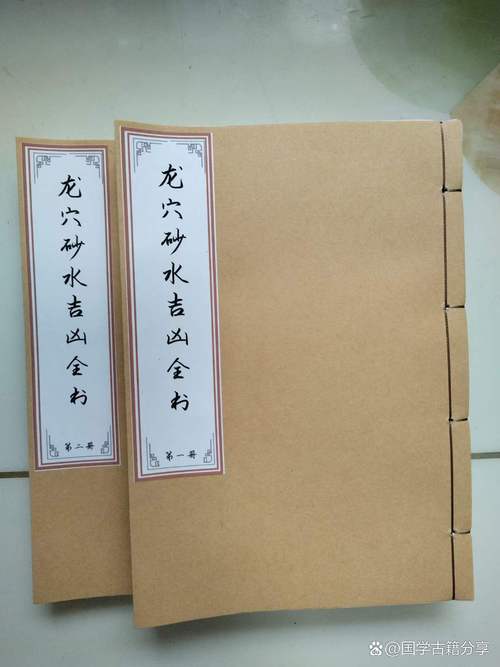 龙穴砂水吉凶全书
第一册
龙穴砂水吉凶全书
第二册
国学古籍分享